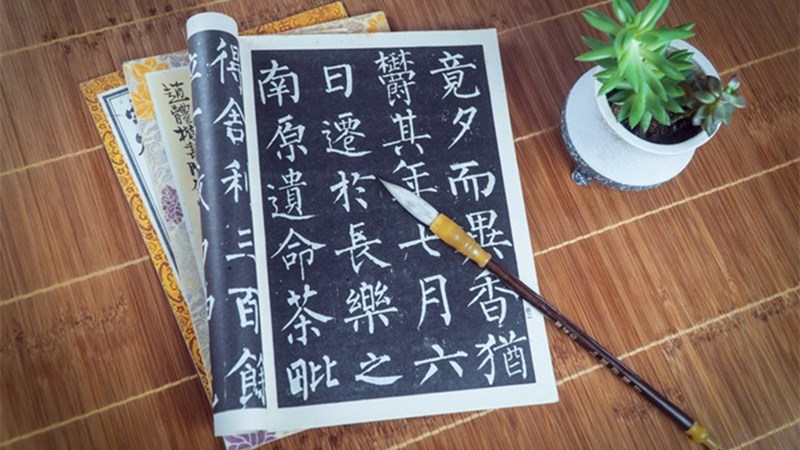 竟夕而異香猶
鬱其年七月六
日遷於長樂之
南原遺命荼毗
得舍利三百餘